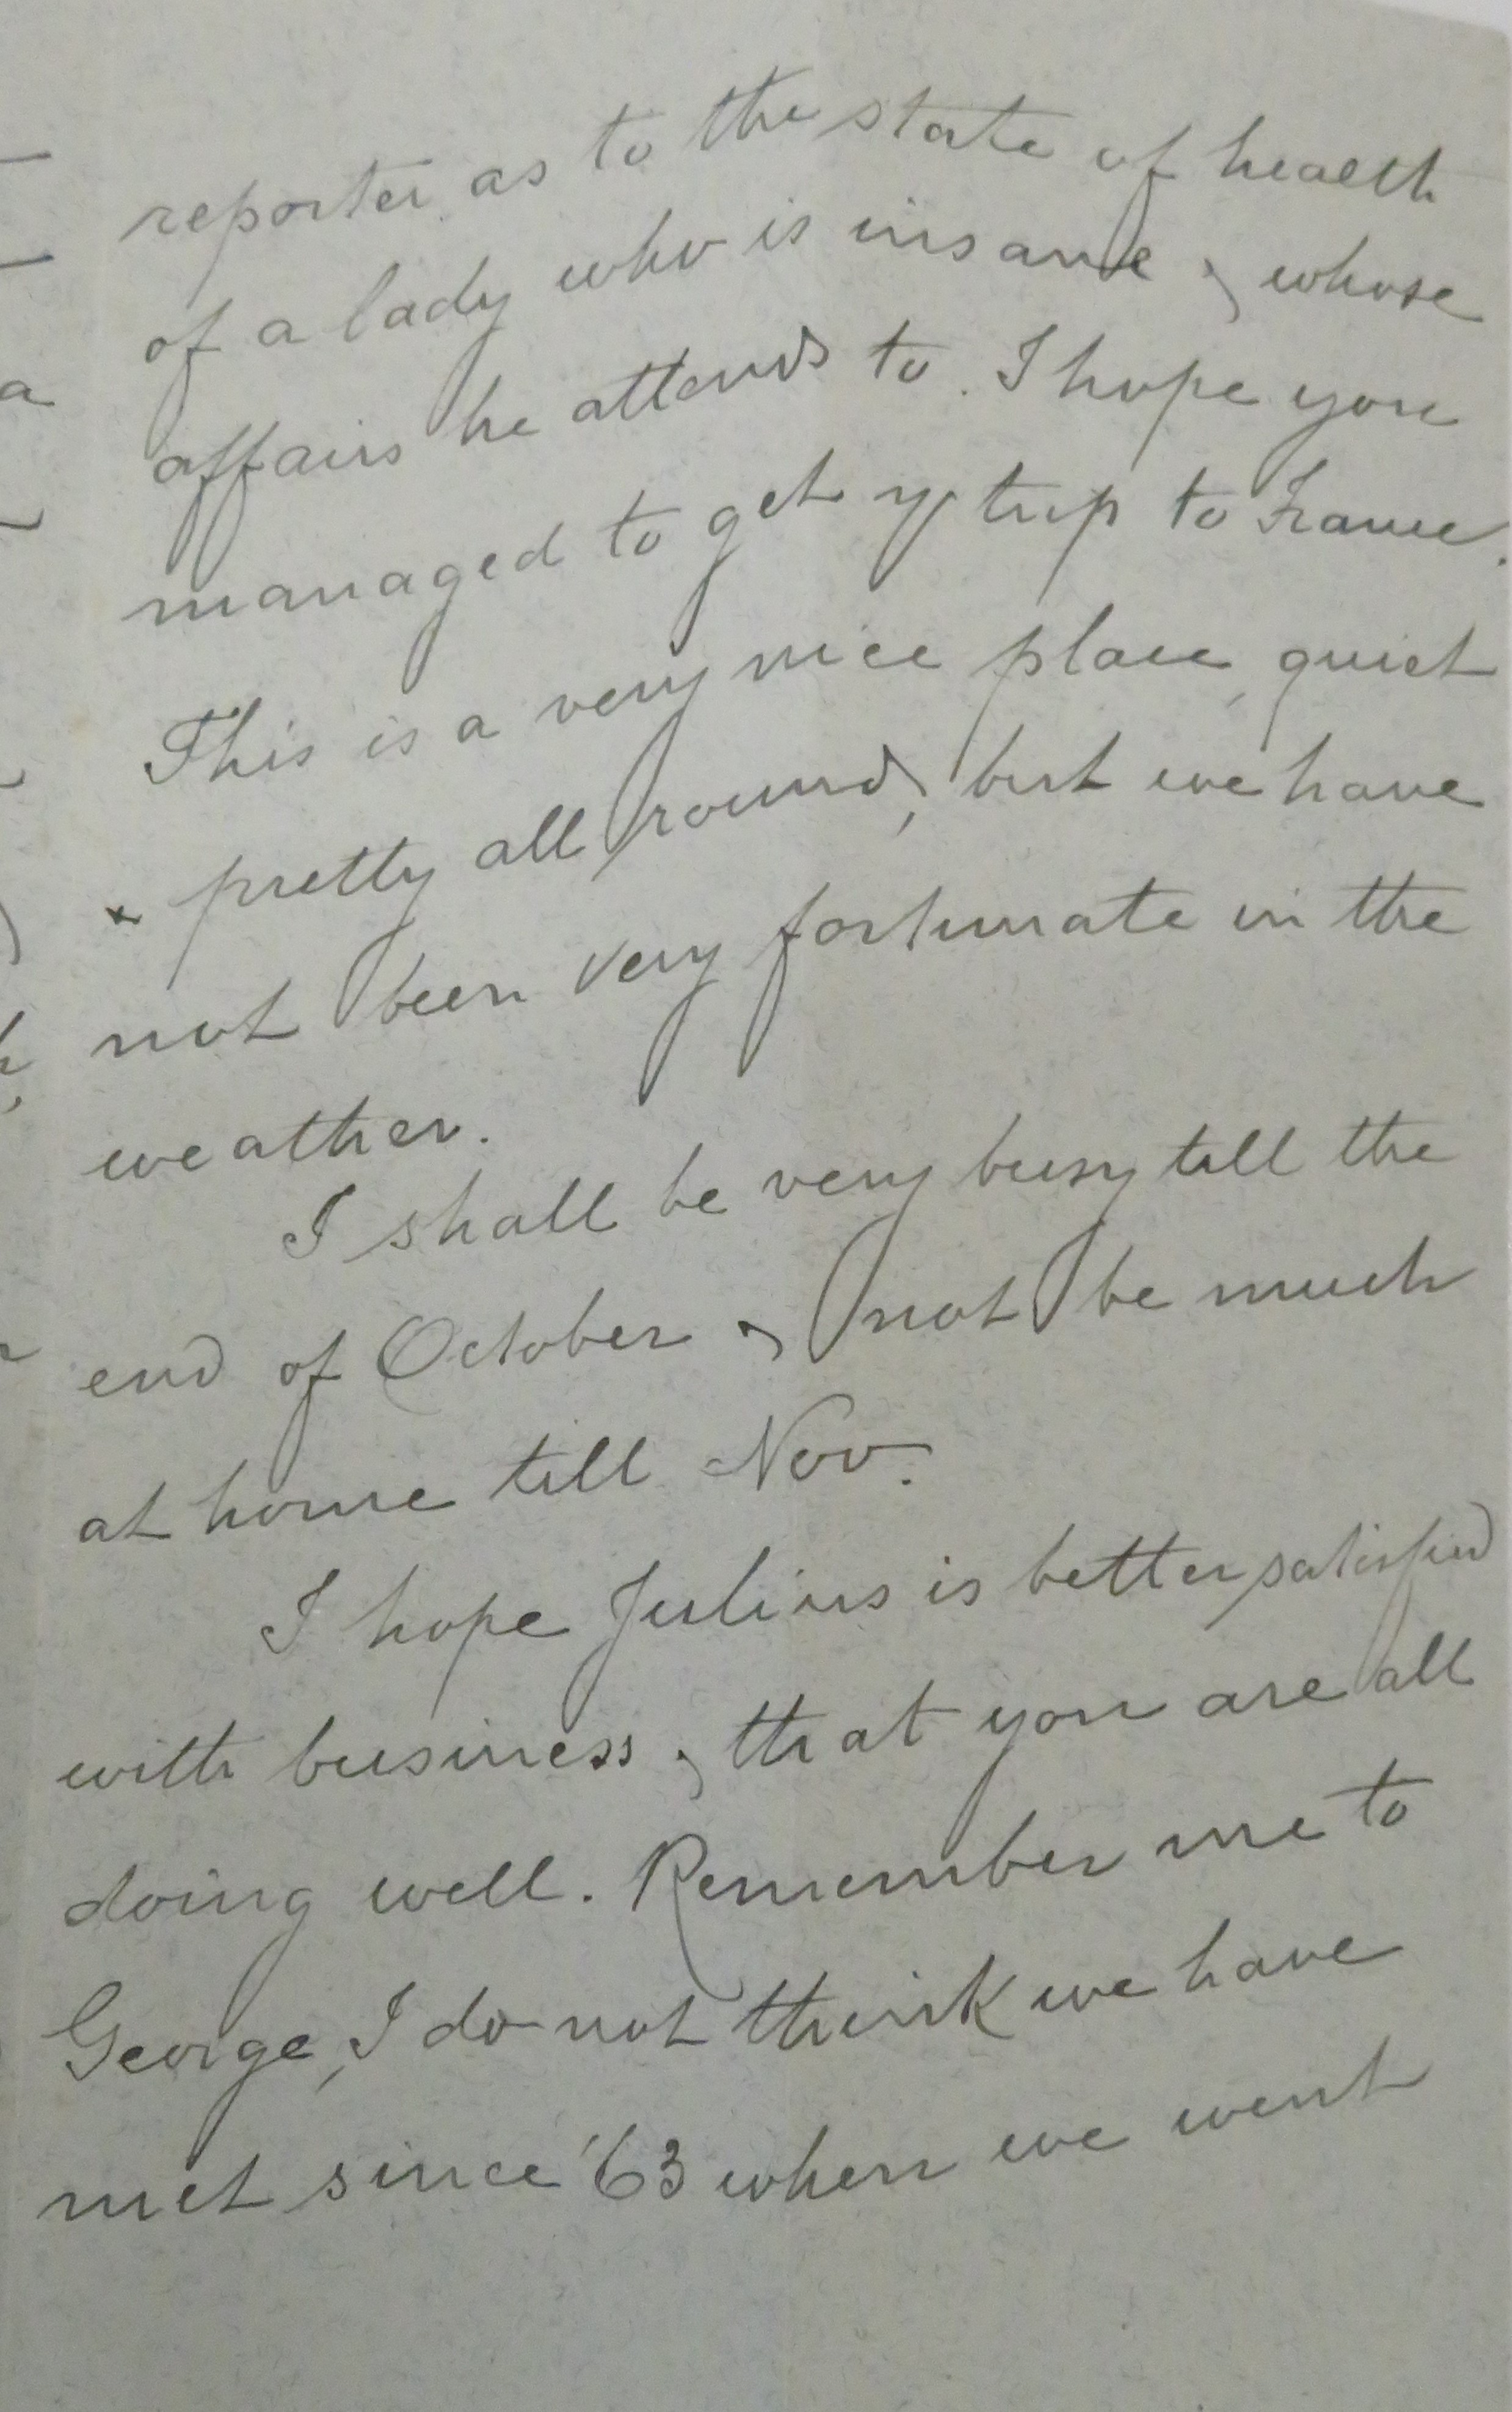 reporter as to the state of health
of a lady who is insane & whose
affairs he attends to. I hope you
managed to get yr trip to France.
This is a very nice place, quiet
& pretty all round, but we have
not been very fortunate in the
weather.
I shall be very busy till the
end of October & not be much
at home till Nov.
I hope Julius is better satisfied
with business & that you are all
doing well. Remember me to
George, I do not think we have
met since '63 when we went